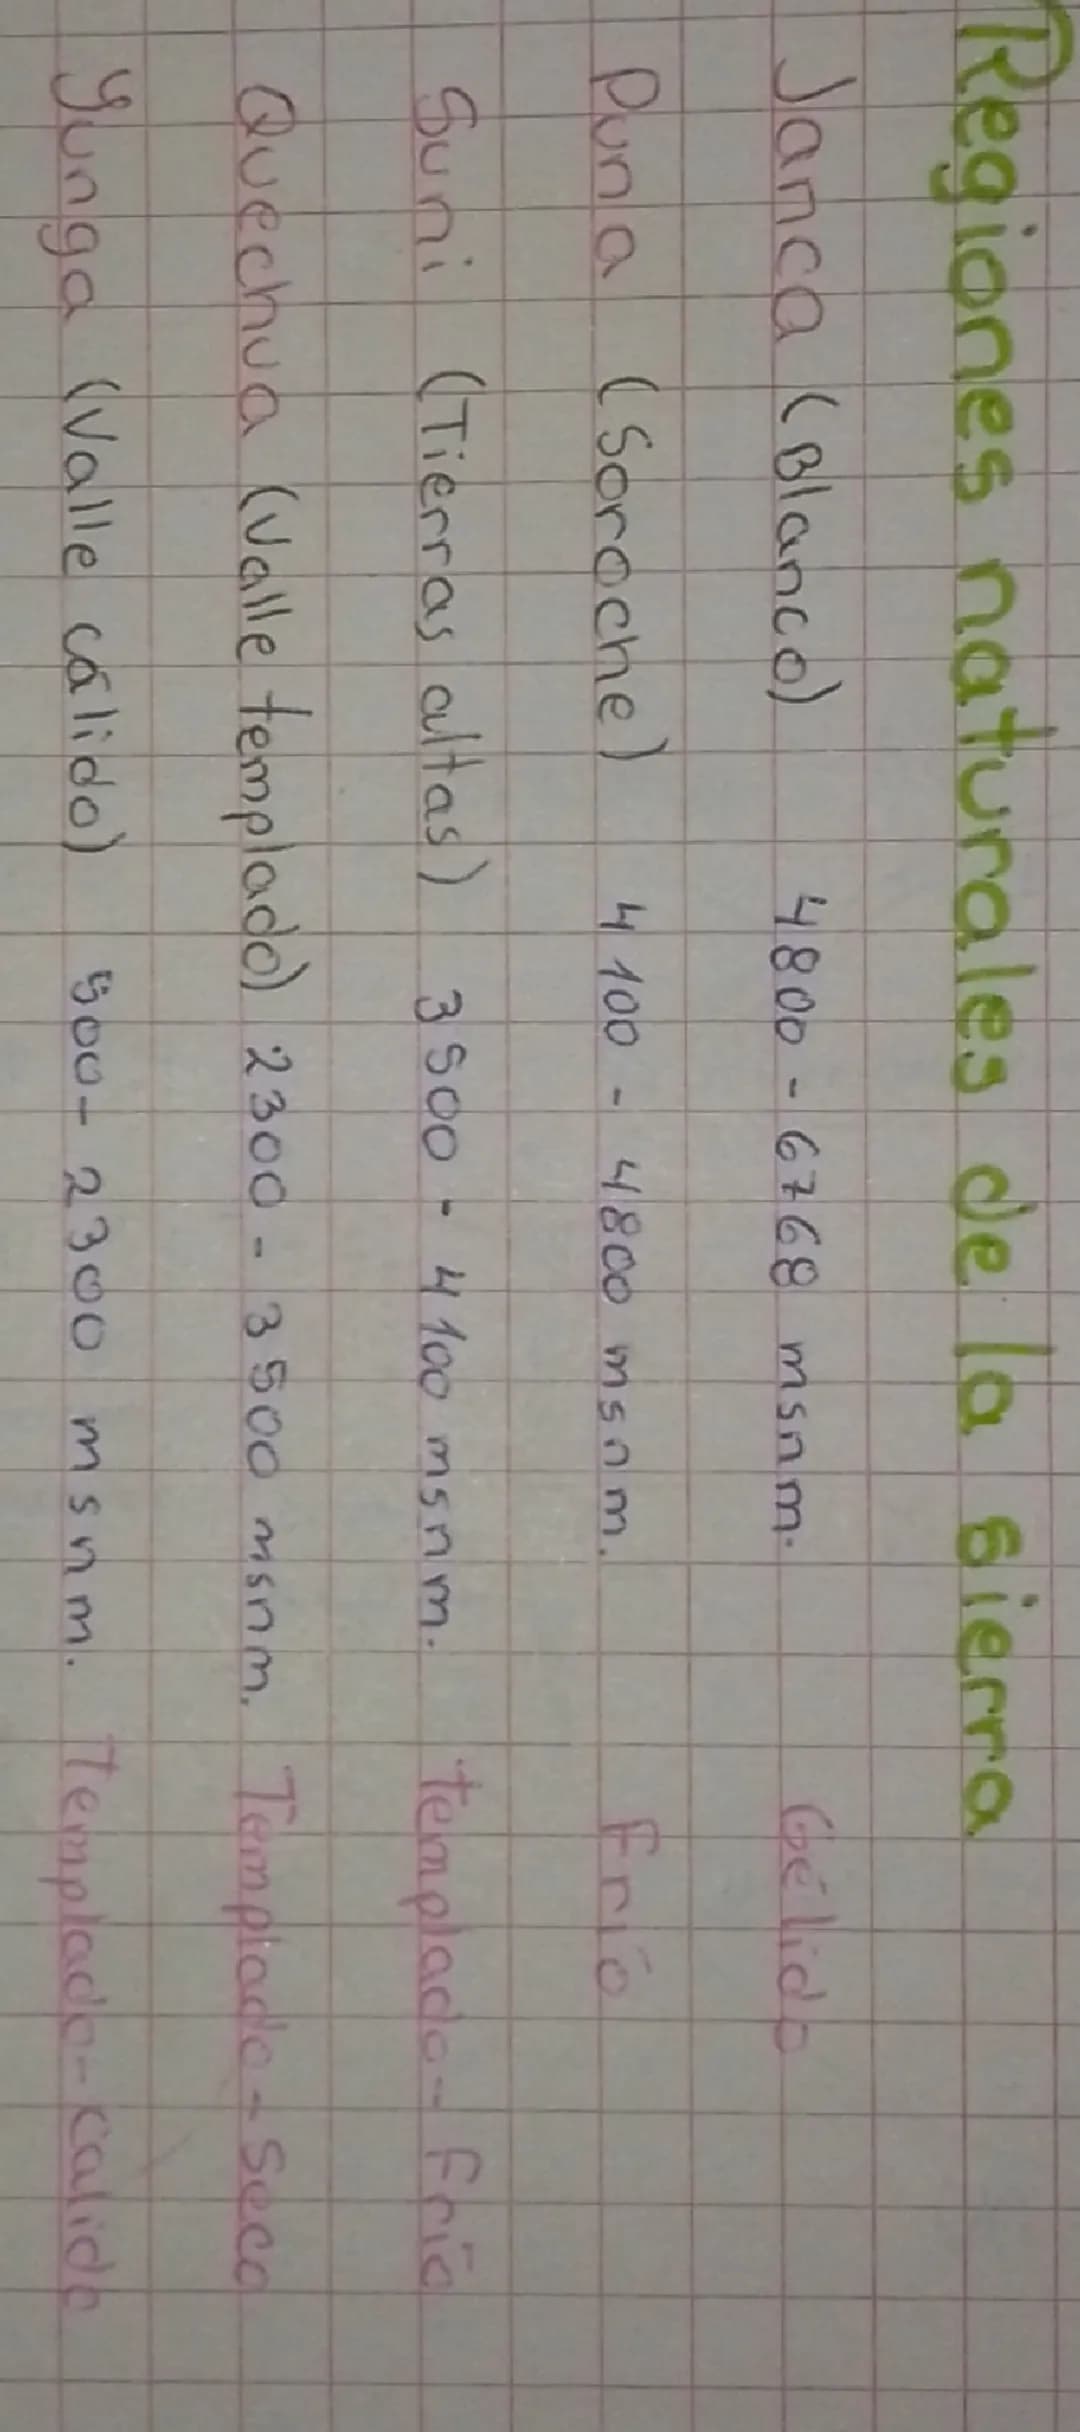 Regiones naturales de la sierra
Janca (Blanco) 4800 - 6768 msnm. Gélido
Puna (Soroche) 4100 - 4800 msnm. Frío
Suni (Tierras altas) 3500 - 4100 msnm. Templado-Frío
Quechua (Valle templado) 2300 - 3500 msnm. Templado-Seco
Yunga (Valle cálido) 500 - 2300 msnm. Templado-calido